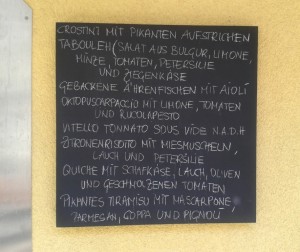 CROSTINI MIT PIKANTEN AUFSTRICHEN
TABOULEH (SALAT AUS BULGUR, LIMONE,
MINZE, TOMATEN, PETERSILIE
UND ZIEGENKÄSE
GEBACKENE ÄHRENFISCHEN MIT AIOLI
OKTOPUSCARPACCIO MIT LIMONE, TOMATEN
UND RUCOLAPESTO
VITELLO TONNATO SOUS VIDE N.A.D.H
ZITRONENRISOTTO MIT MIESMUSCHELN,
LAUCH UND PETERSILIE
QUICHE MIT SCHAFKÄSE, LAUCH, OLIVEN
UND GESCHMOLZENEN TOMATEN
PIKANTES TIRAMISU MIT MASCARPONE,
PARMESAN, COPPA UND PIGNOLI